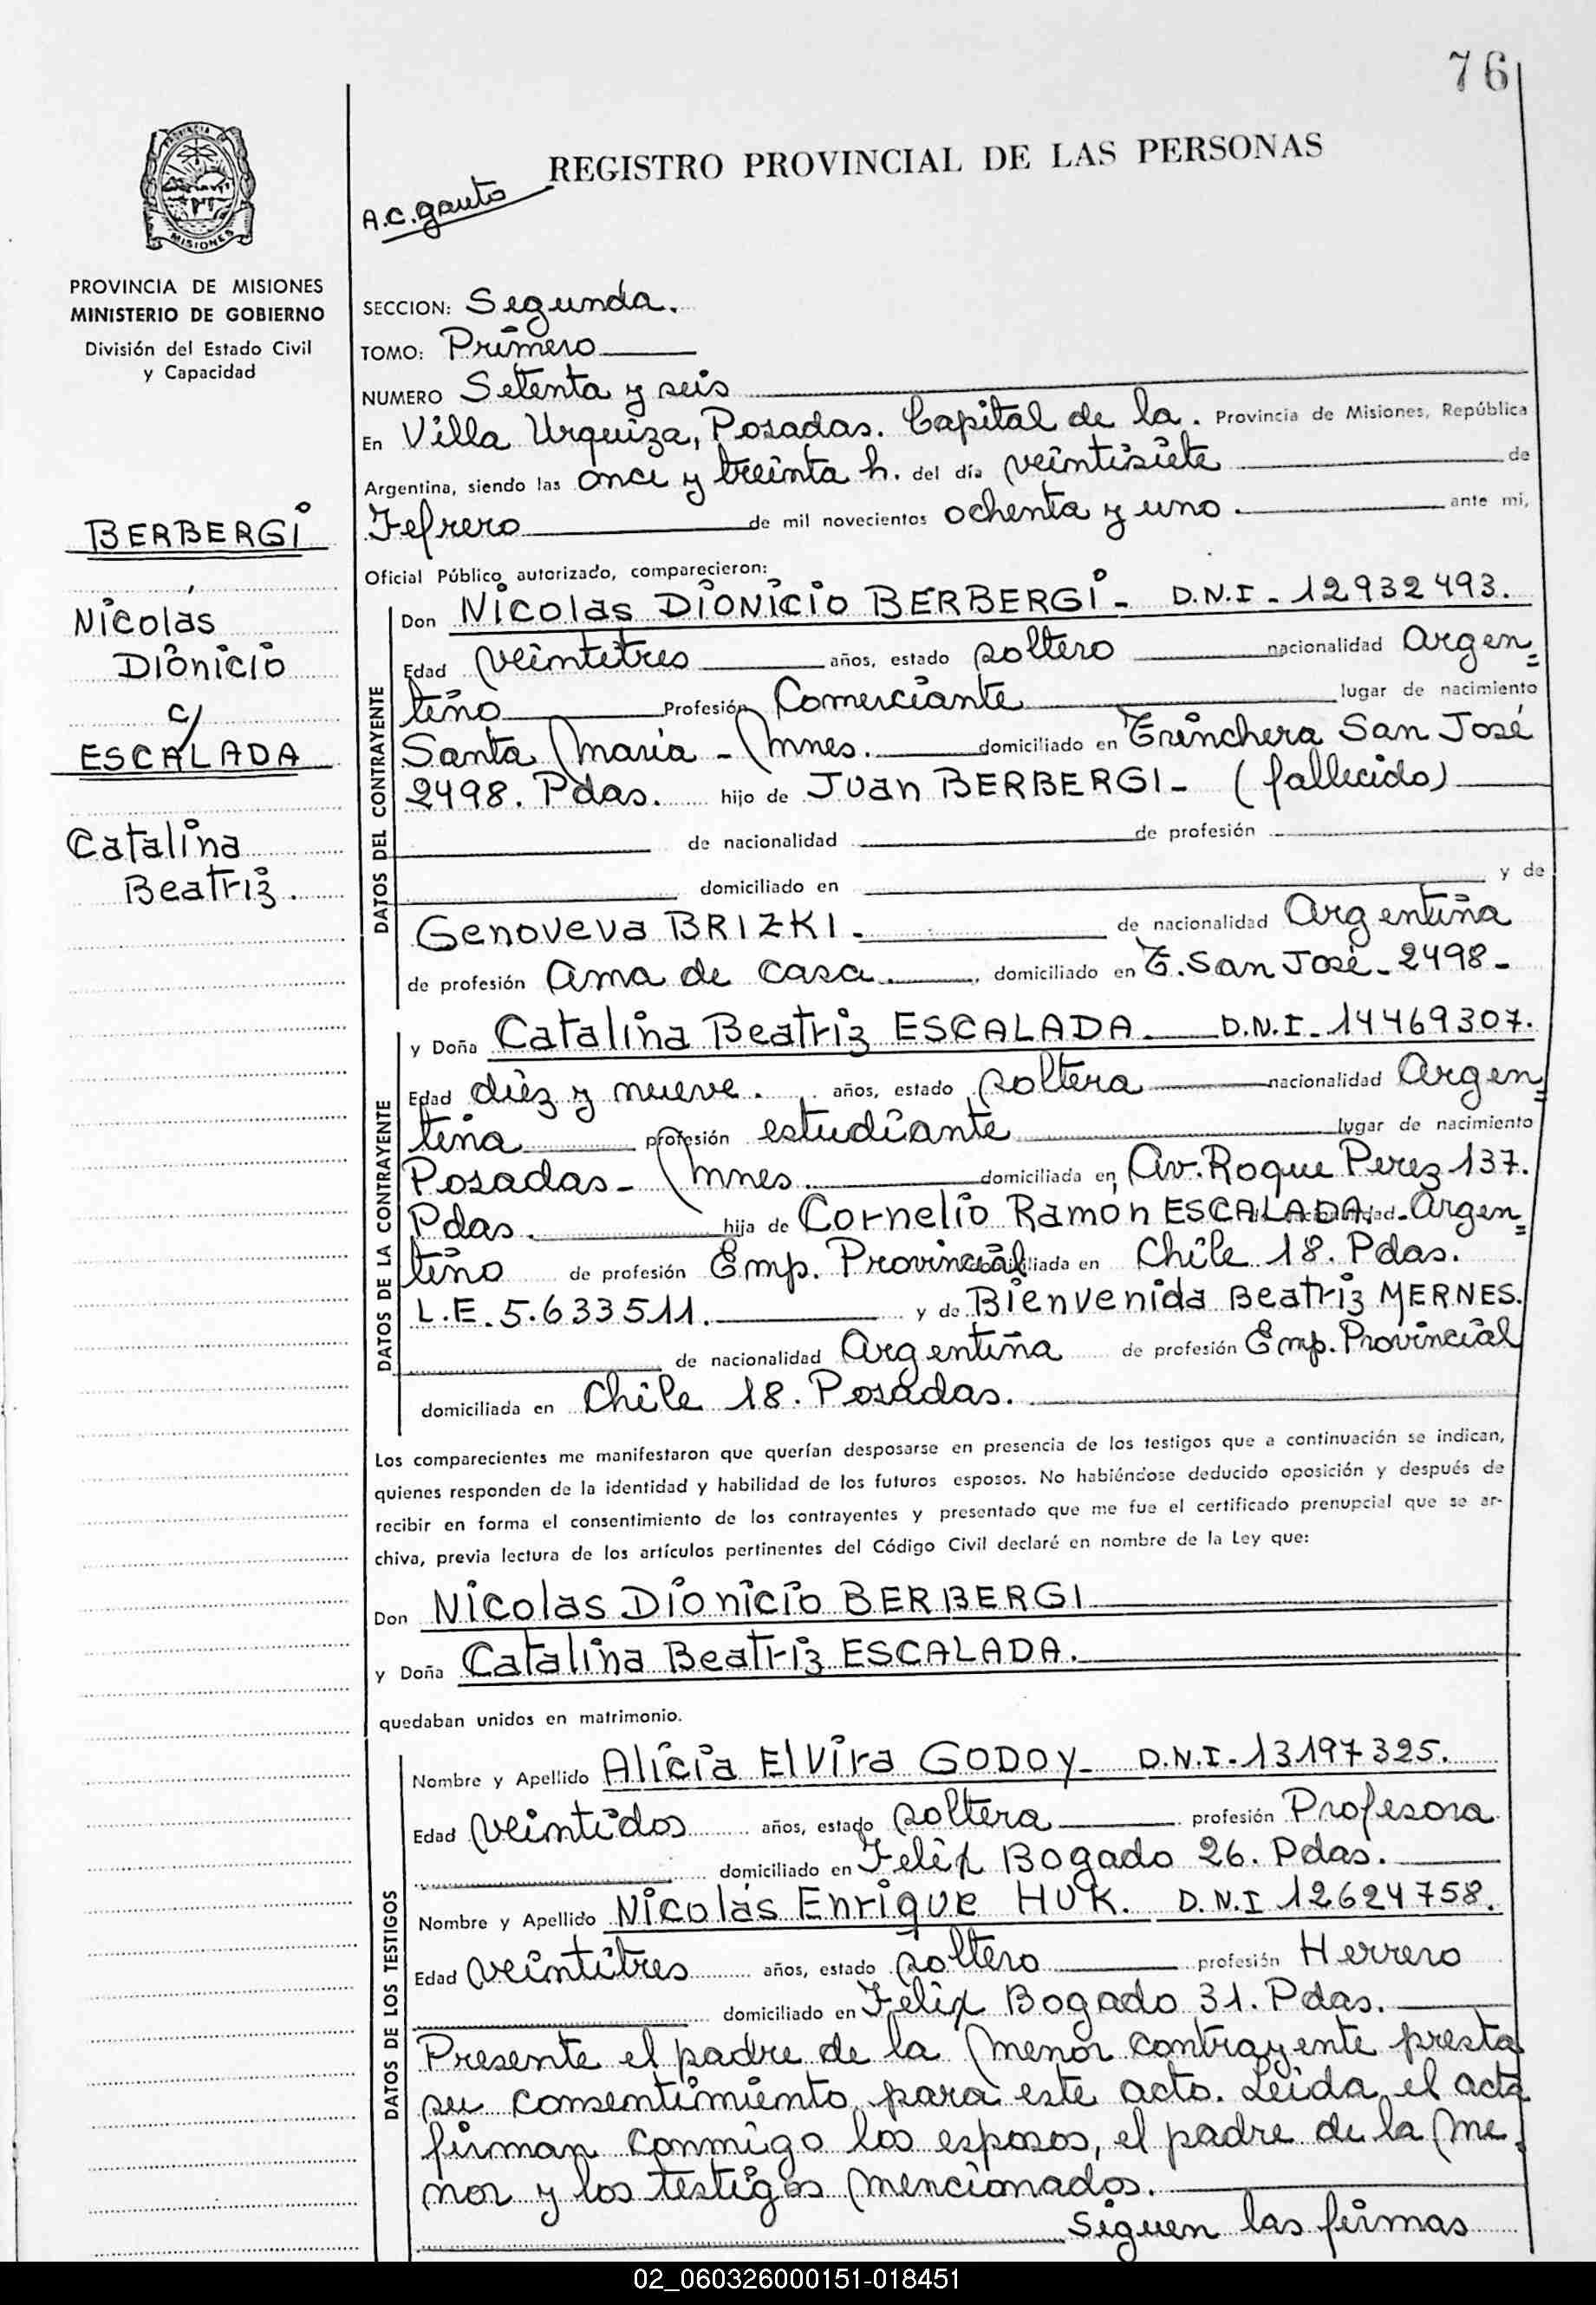 76
REGISTRO PROVINCIAL DE LAS PERSONAS
A.C. Gauto
PROVINCIA DE MISIONES
MINISTERIO DE GOBIERNO
División del Estado Civil
y Capacidad
BERBERGI
Nicolas
Dionicio
c/
ESCALADA
Catalina
Beatriz.
SECCION: Segunda.
TOMO: Primero
NUMERO Setenta y seis
En Villa Urquiza, Posadas. Capital de la. Provincia de Misiones, República
Argentina, siendo las once y treinta h. del día veintisiete de
Febrero de mil novecientos ochenta y uno. ante mi,
Oficial Público autorizado, comparecieron:
DATOS DEL CONTRAYENTE
Don Nicolas Dionicio BERBERGI - D.N.I - 12932493.
Edad veintitres años, estado soltero nacionalidad Argen=
tino Profesión Comerciante lugar de nacimiento
Santa Maria - Mnes. domiciliado en Trinchera San José
2498. Pdas. hijo de Juan BERBERGI - (fallecido)
de nacionalidad de profesión
domiciliado en y de
Genoveva BRIZKI. de nacionalidad Argentina
de profesión Ama de casa. domiciliado en T. San José - 2498 -
DATOS DE LA CONTRAYENTE
y Doña Catalina Beatriz ESCALADA. D.N.I - 14469307.
Edad diez y nueve. años, estado soltera nacionalidad Argen=
tina profesión estudiante lugar de nacimiento
Posadas - Mnes. domiciliada en Av. Roque Perez 137.
Pdas. hija de Cornelio Ramón ESCALADA. - Argen=
tino de profesión Emp. Provincial domiciliada en Chile 18. Pdas.
L.E. 5.633511. y de Bienvenida Beatriz MERNES.
de nacionalidad Argentina de profesión Emp. Provincial
domiciliada en Chile 18. Posadas.
Los comparecientes me manifestaron que querían desposarse en presencia de los testigos que a continuación se indican,
quienes responden de la identidad y habilidad de los futuros esposos. No habiéndose deducido oposición y después de
recibir en forma el consentimiento de los contrayentes y presentado que me fue el certificado prenupcial que se ar-
chiva, previa lectura de los artículos pertinentes del Código Civil declaré en nombre de la Ley que:
Don Nicolas Dionicio BERBERGI
y Doña Catalina Beatriz ESCALADA.
quedaban unidos en matrimonio.
DATOS DE LOS TESTIGOS
Nombre y Apellido Alicia Elvira GODOY - D.N.I - 13197325.
Edad veintidos años, estado soltera profesión Profesora
domiciliado en Felix Bogado 26. Pdas.
Nombre y Apellido Nicolás Enrique HUK. D.N.I 12624758.
Edad veintitres años, estado soltero profesión Herrero
domiciliado en Felix Bogado 31. Pdas.
Presente el padre de la menor contrayente presta
su consentimiento para este acto. Leida el acta
firman conmigo los esposos, el padre de la me
nor y los testigos mencionados.
Siguen las firmas
02_060326000151-018451